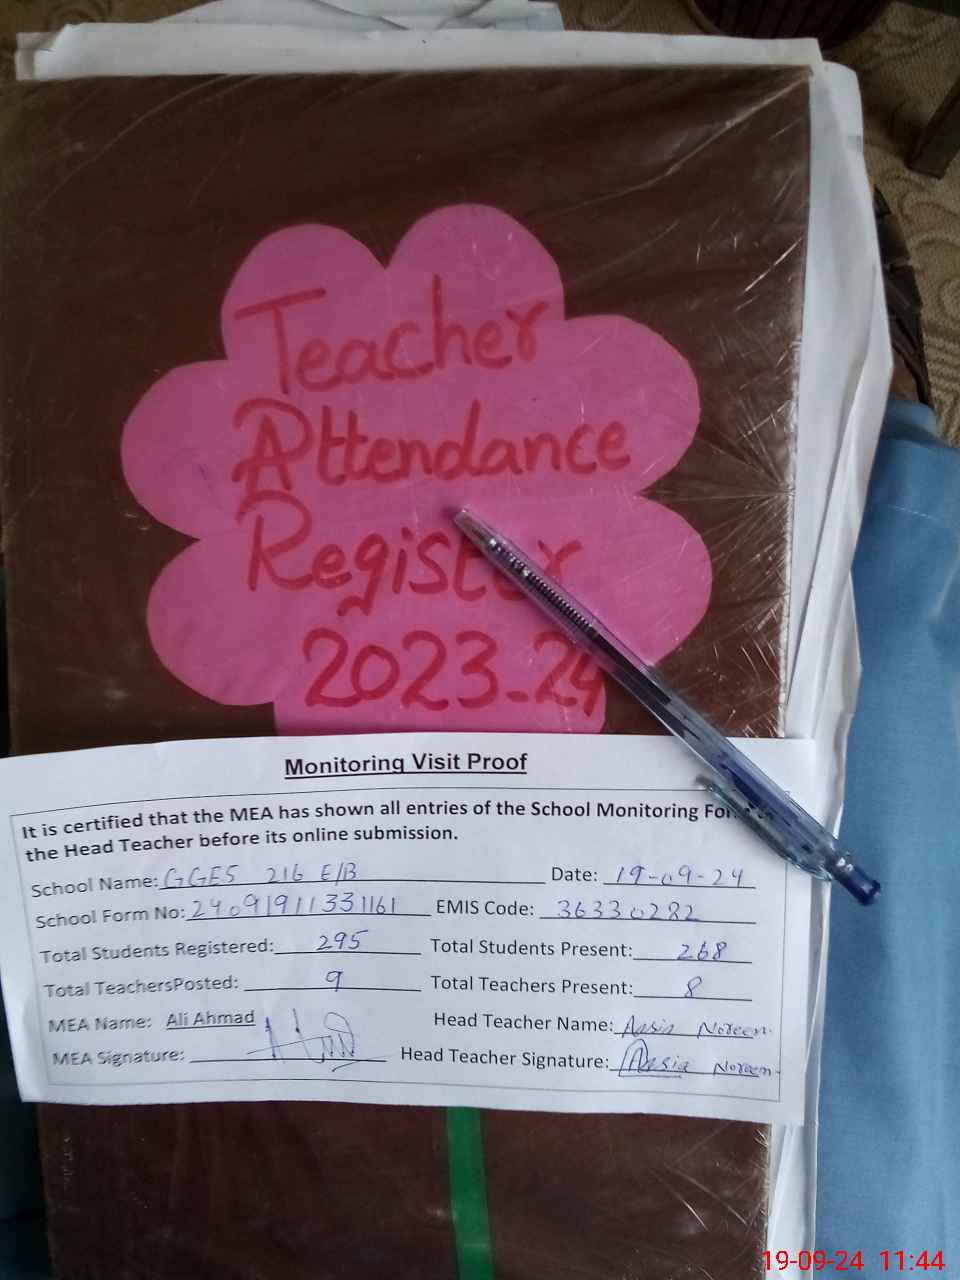 Teacher
Attendance
Register
2023-24
Monitoring Visit Proof
It is certified that the MEA has shown all entries of the School Monitoring
the Head Teacher before its online submission.
School Name: GGES 216 E/B Date: 19-09-24
School Form No: 24091911331161 EMIS Code: 36330282
Total Students Registered: 295 Total Students Present: 268
Total TeachersPosted: 9 Total Teachers Present: 8
MEA Name: Ali Ahmad Head Teacher Name: Aasia Noreen.
MEA Signature: Head Teacher Signature: Aasia Noreen.
19-09-24 11:44